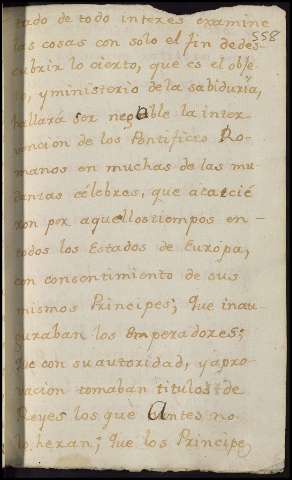 tado de todo interes examine
las cosas con solo el fin de des-
558
cubrir lo cierto, que es el obje-
to, y ministerio de la sabiduria,
hallará ser negable la inter-
vencion de los Pontifices Ro-
manos en muchas de las mu-
danzas célebres, que acaecié
ron por aquellos tiempos en-
todos los Estados de Europa,
con consentimiento de sus
mismos Principes; Que inau-
guraban los Emperadores;
que con su autoridad, y apro-
vacion tomaban titulos de
Reyes los que Antes no
lo heran; Que los Principe